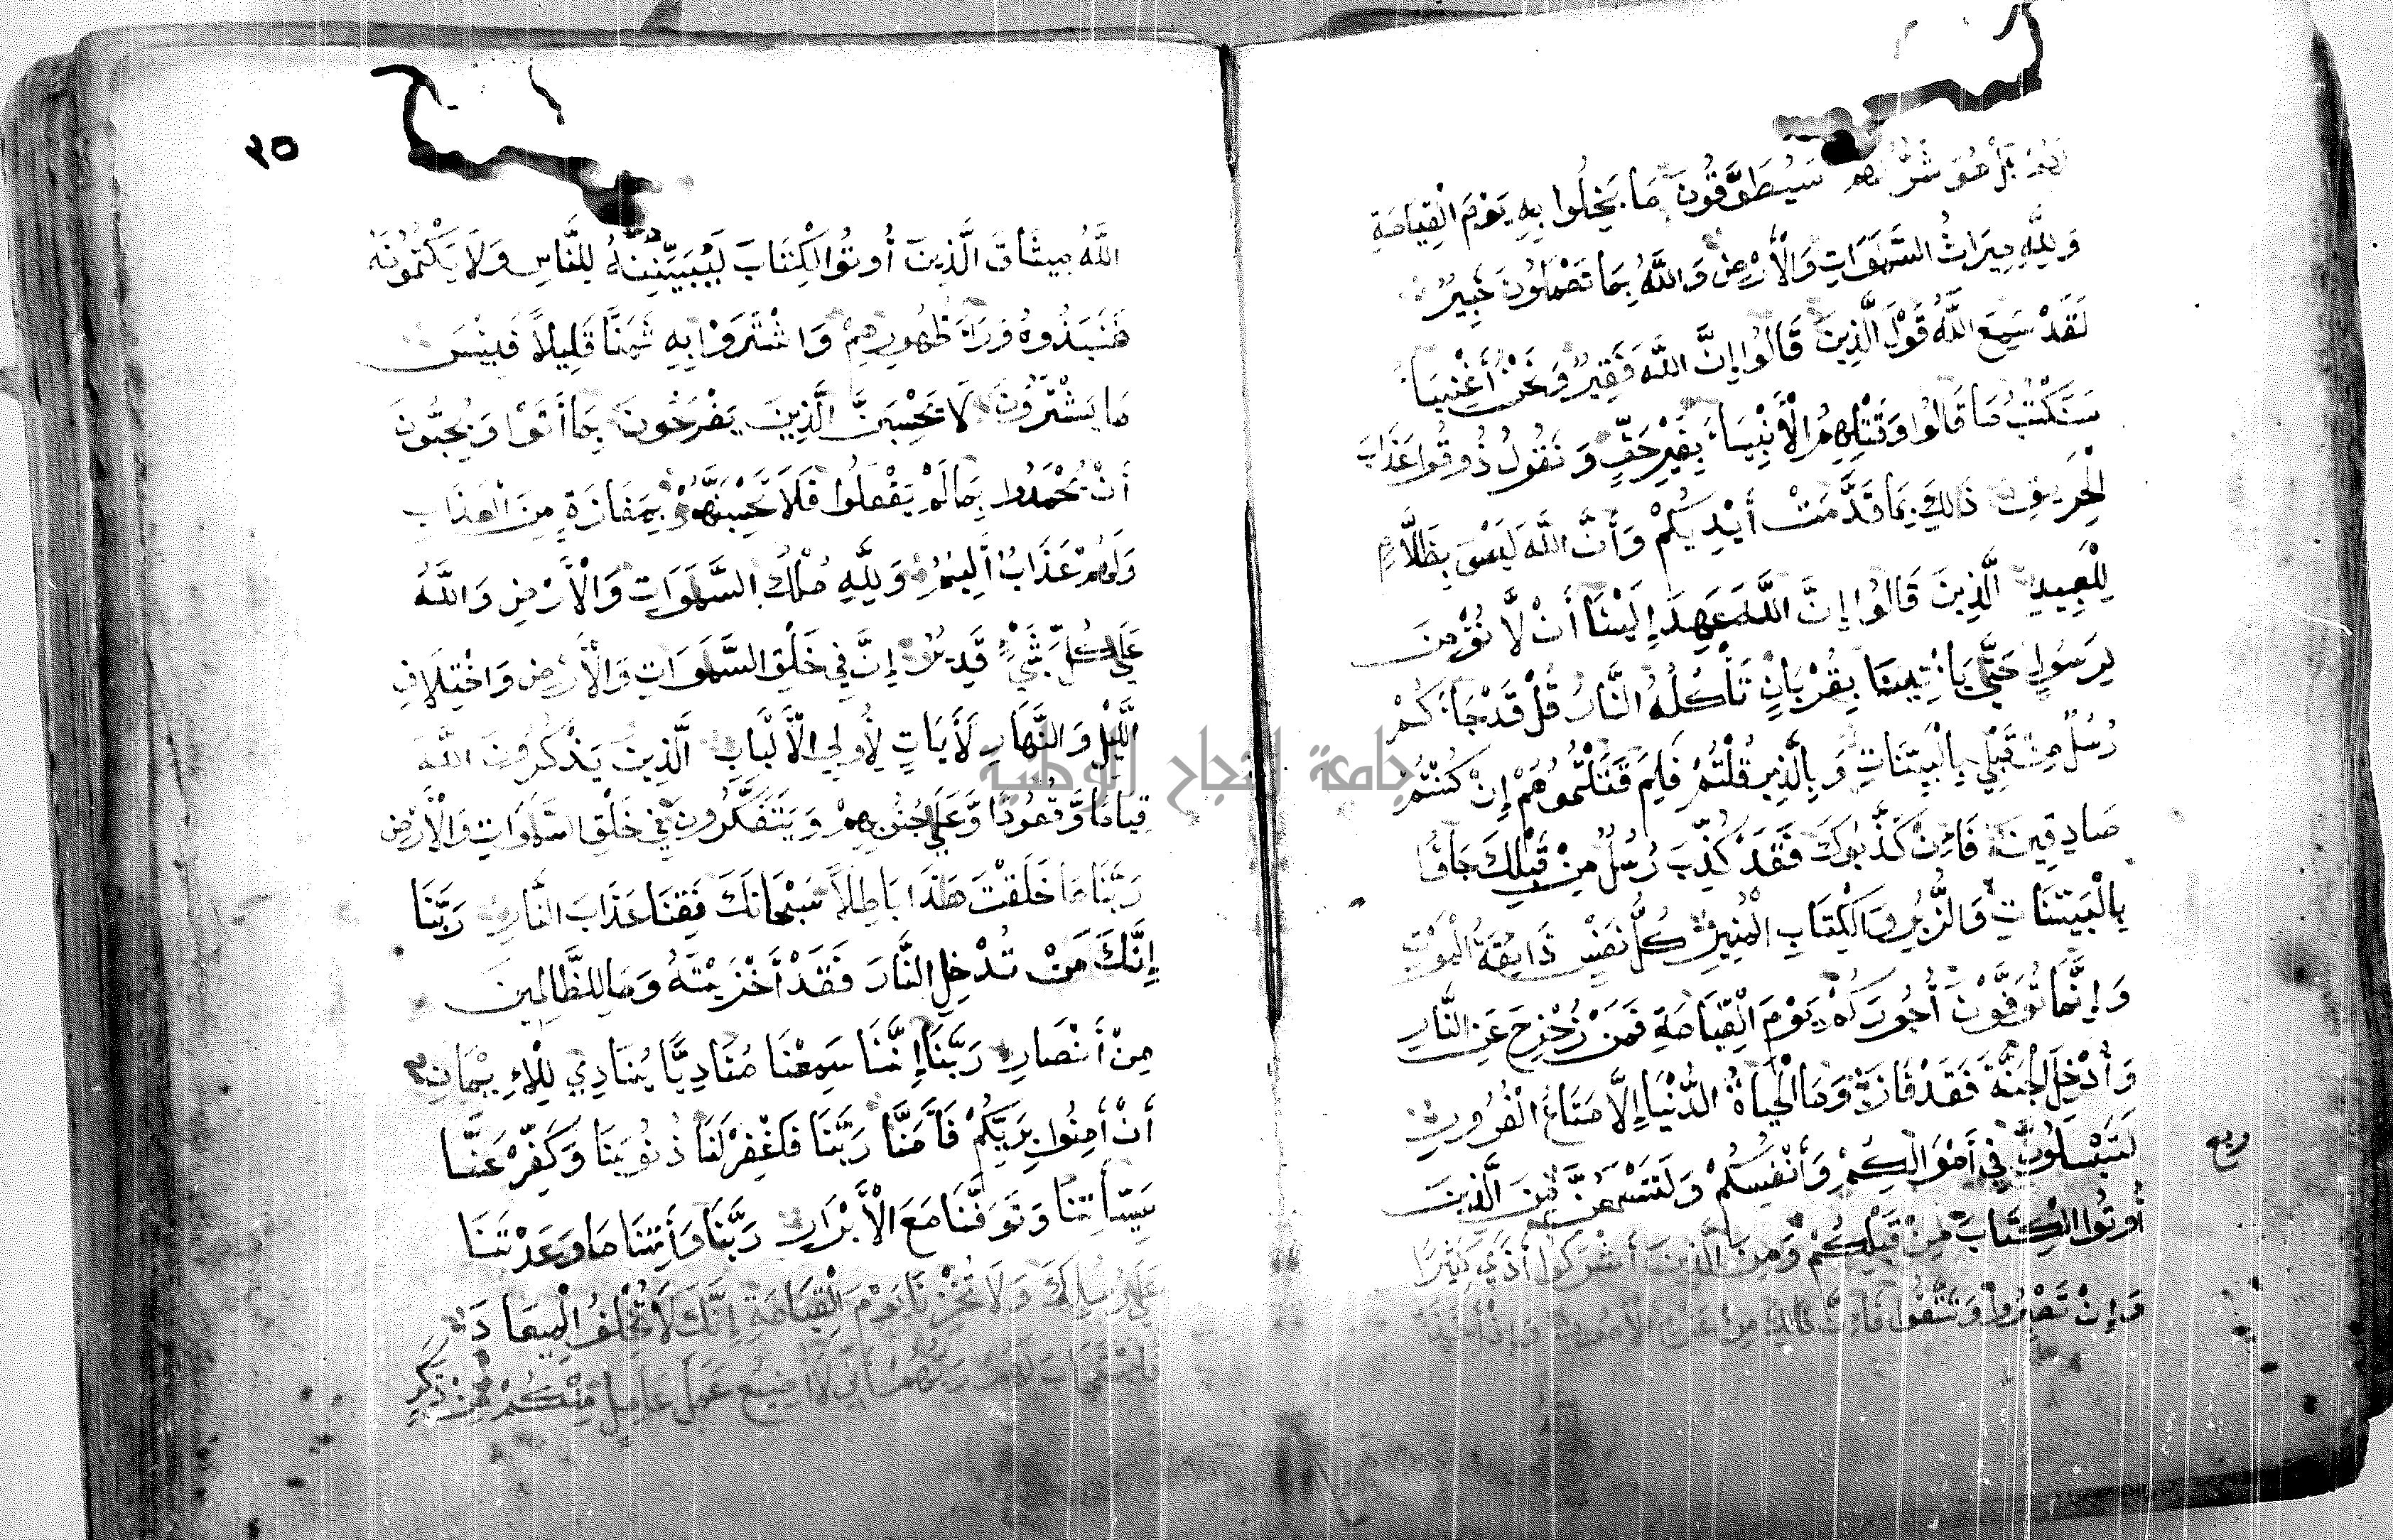 لهم بل هو شر لهم سَيُطَوَّقُونَ مَا بَخِلُوا بِهِ يَوْمَ الْقِيَامَةِ
وَلِلَّهِ مِيرَاثُ السَّمَوَاتِ وَالْأَرْضِ وَاللَّهُ بِمَا تَعْمَلُونَ خَبِيرٌ
لَقَدْ سَمِعَ اللَّهُ قَوْلَ الَّذِينَ قَالُوا إِنَّ اللَّهَ فَقِيرٌ وَنَحْنُ أَغْنِيَاءُ
سَنَكْتُبُ مَا قَالُوا وَقَتْلِهِمُ الْأَنْبِيَاءَ بِغَيْرِ حَقٍّ وَنَقُولُ ذُوقُوا عَذَابَ
الْحَرِيقِ ذَالِكَ بِمَا قَدَّمَتْ أَيْدِيكُمْ وَأَنَّ اللَّهَ لَيْسَ بِظَلَّامٍ
لِلْعَبِيدِ الَّذِينَ قَالُوا إِنَّ اللَّهَ عَهِدَ إِلَيْنَا أَنْ لَّا نُؤْمِنَ
لِرَسُولٍ حَتَّى يَأْتِيَنَا بِقُرْبَانٍ تَأْكُلُهُ النَّارُ قُلْ قَدْ جَاءَكُمْ
رُسُلٌ مِنْ قَبْلِي بِالْبَيِّنَاتِ وَبِالَّذِي قُلْتُمْ فَلِمَ قَتَلْتُمُوهُمْ إِنْ كُنْتُمْ
صَادِقِينَ فَإِنْ كَذَّبُوكَ فَقَدْ كُذِّبَ رُسُلٌ مِنْ قَبْلِكَ جَاؤُا
بِالْبَيِّنَاتِ وَالزُّبُرِ وَالْكِتَابِ الْمُنِيرِ كُلُّ نَفْسٍ ذَايِقَةُ الْمَوْتِ
وَإِنَّمَا تُوَفَّوْنَ أُجُورَكُمْ يَوْمَ الْقِيَامَةِ فَمَنْ زُحْزِحَ عَنِ النَّارِ
وَأُدْخِلَ الْجَنَّةَ فَقَدْ فَازَ وَمَا الْحَيَاةُ الدُّنْيَا إِلَّا مَتَاعُ الْغُرُورِ
لَتُبْلَوُنَّ فِي أَمْوَالِكُمْ وَأَنْفُسِكُمْ وَلَتَسْمَعُنَّ مِنَ الَّذِينَ
ربع
أُوتُوا الْكِتَابَ مِنْ قَبْلِكُمْ وَمِنَ الَّذِينَ أَشْرَكُوا أَذًى كَثِيرًا
وَإِنْ تَصْبِرُوا وَتَتَّقُوا فَإِنَّ ذَالِكَ مِنْ عَزْمِ الْأُمُورِ وَإِذْ أَخَذَ
٢٥
اللَّهُ مِيثَاقَ الَّذِينَ أُوتُوا الْكِتَابَ لَيُبَيِّنُنَّهُ لِلنَّاسِ وَلَا يَكْتُمُونَهُ
فَنَبَذُوهُ وَرَاءَ ظُهُورِهِمْ وَاشْتَرَوْا بِهِ ثَمَنًا قَلِيلًا فَبِئْسَ
مَا يَشْتَرُونَ لَا تَحْسِبَنَّ الَّذِينَ يَفْرَحُونَ بِمَا أَتَوْا وَيُحِبُّونَ
أَنْ يُحْمَدُوا بِمَا لَمْ يَفْعَلُوا فَلَا تَحْسِبَنَّهُمْ بِمَفَازَةٍ مِنَ الْعَذَابِ
وَلَهُمْ عَذَابٌ أَلِيمٌ وَلِلَّهِ مُلْكُ السَّمَوَاتِ وَالْأَرْضِ وَاللَّهُ
عَلَى كُلِّ شَيْءٍ قَدِيرٌ إِنَّ فِي خَلْقِ السَّمَوَاتِ وَالْأَرْضِ وَاخْتِلَافِ
الَّيْلِ وَالنَّهَارِ لَأَيَاتٍ لِأُولِي الْأَلْبَابِ الَّذِينَ يَذْكُرُونَ اللَّهَ
قِيَامًا وَّقُعُودًا وَّعَلَى جُنُوبِهِمْ وَيَتَفَكَّرُونَ فِي خَلْقِ السَّمَوَاتِ وَالْأَرْضِ
رَبَّنَا مَا خَلَقْتَ هَذَا بَاطِلًا سُبْحَانَكَ فَقِنَا عَذَابَ النَّارِ رَبَّنَا
إِنَّكَ مَنْ تُدْخِلِ النَّارَ فَقَدْ أَخْزَيْتَهُ وَمَا لِلظَّالِمِينَ
مِنْ أَنْصَارٍ رَبَّنَا إِنَّنَا سَمِعْنَا مُنَادِيًا يُنَادِي لِلْإِيمَانِ
أَنْ أَمِنُوا بِرَبِّكُمْ فَآمَنَّا رَبَّنَا فَاغْفِرْ لَنَا ذُنُوبَنَا وَكَفِّرْ عَنَّا
سَيِّأَتِنَا وَتَوَفَّنَا مَعَ الْأَبْرَارِ رَبَّنَا وَأَتِنَا مَا وَعَدْتَنَا
عَلَى رُسُلِكَ وَلَا تُخْزِنَا يَوْمَ الْقِيَامَةِ إِنَّكَ لَا تُخْلِفُ الْمِيعَادَ
فَاسْتَجَابَ لَهُمْ رَبُّهُمْ أَنِّي لَا أُضِيعُ عَمَلَ عَامِلٍ مِنْكُمْ مِنْ ذَكَرٍ
جامعة النجاح الوطنية